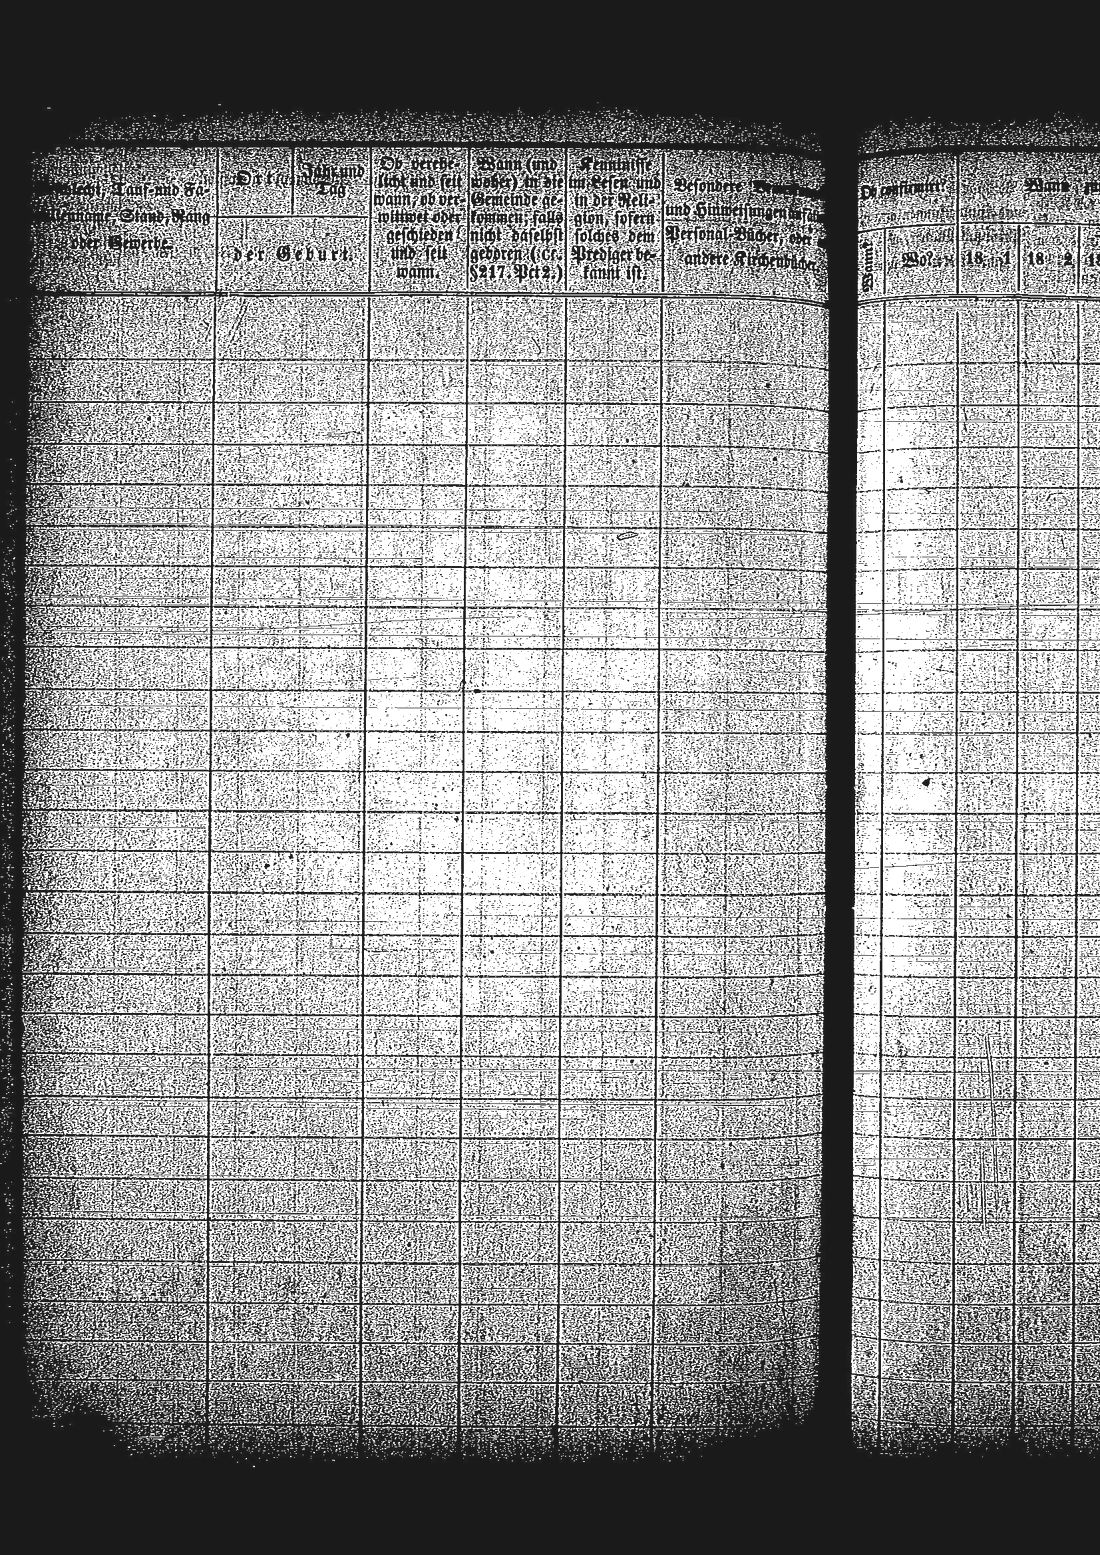 Tauf- und Fa-
Stand, Rang
oder Gewerbe.
Ort
Jahr und
Tag
der Geburt.
Ob verehe-
licht und seit
wann, ob ver-
wittwet oder
geschieden
und seit
wann.
Wann (und
woher) in die
Gemeinde ge-
kommen, falls
nicht daselbst
geboren (cr.
§217. Pct 2.)
Kenntnisse
im Lesen und
in der Reli-
gion, sofern
solches dem
Prediger be-
kannt ist.
Besondere
und Hinweisungen
Personal-Bücher, oder
andere Kirchenbücher.
Ob confirmirt?
Wann?
Wo?
Wann
18 1
18 2
18